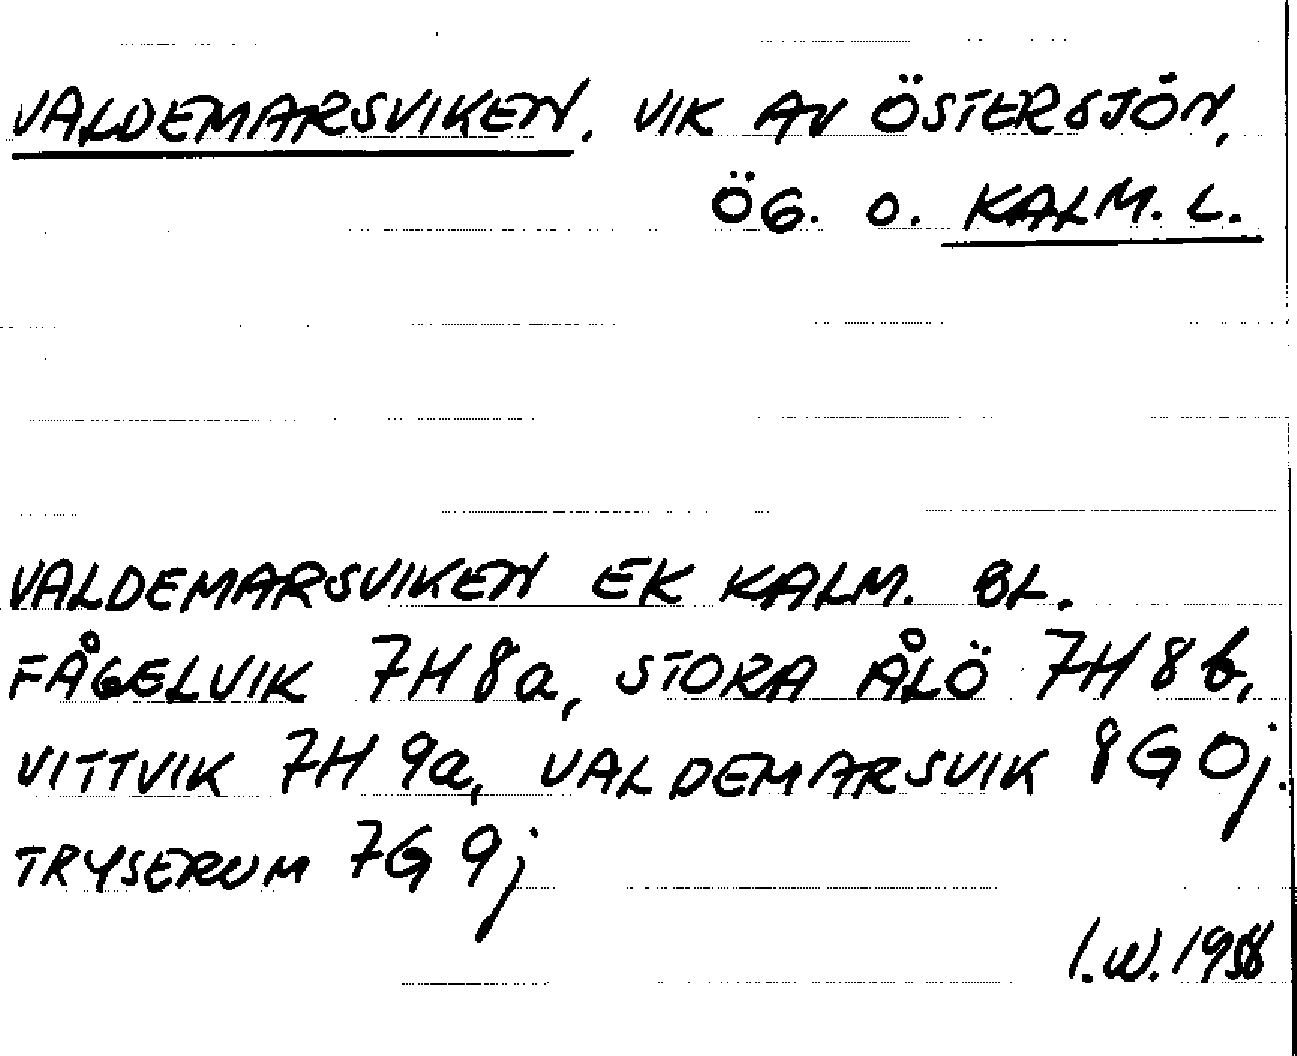 VALDEMARSVIKEN. VIK AV ÖSTERSJÖN,
ÖG. O. KALM. L.
VALDEMARSVIKEN EK KALM. BL.
FÅGELVIK 7H8a, STORA ÅLÖ 7H8b,
VITTVIK 7H9a, VALDEMARSVIK 8G0j.
TRYSERUM 7G9j
I.W.